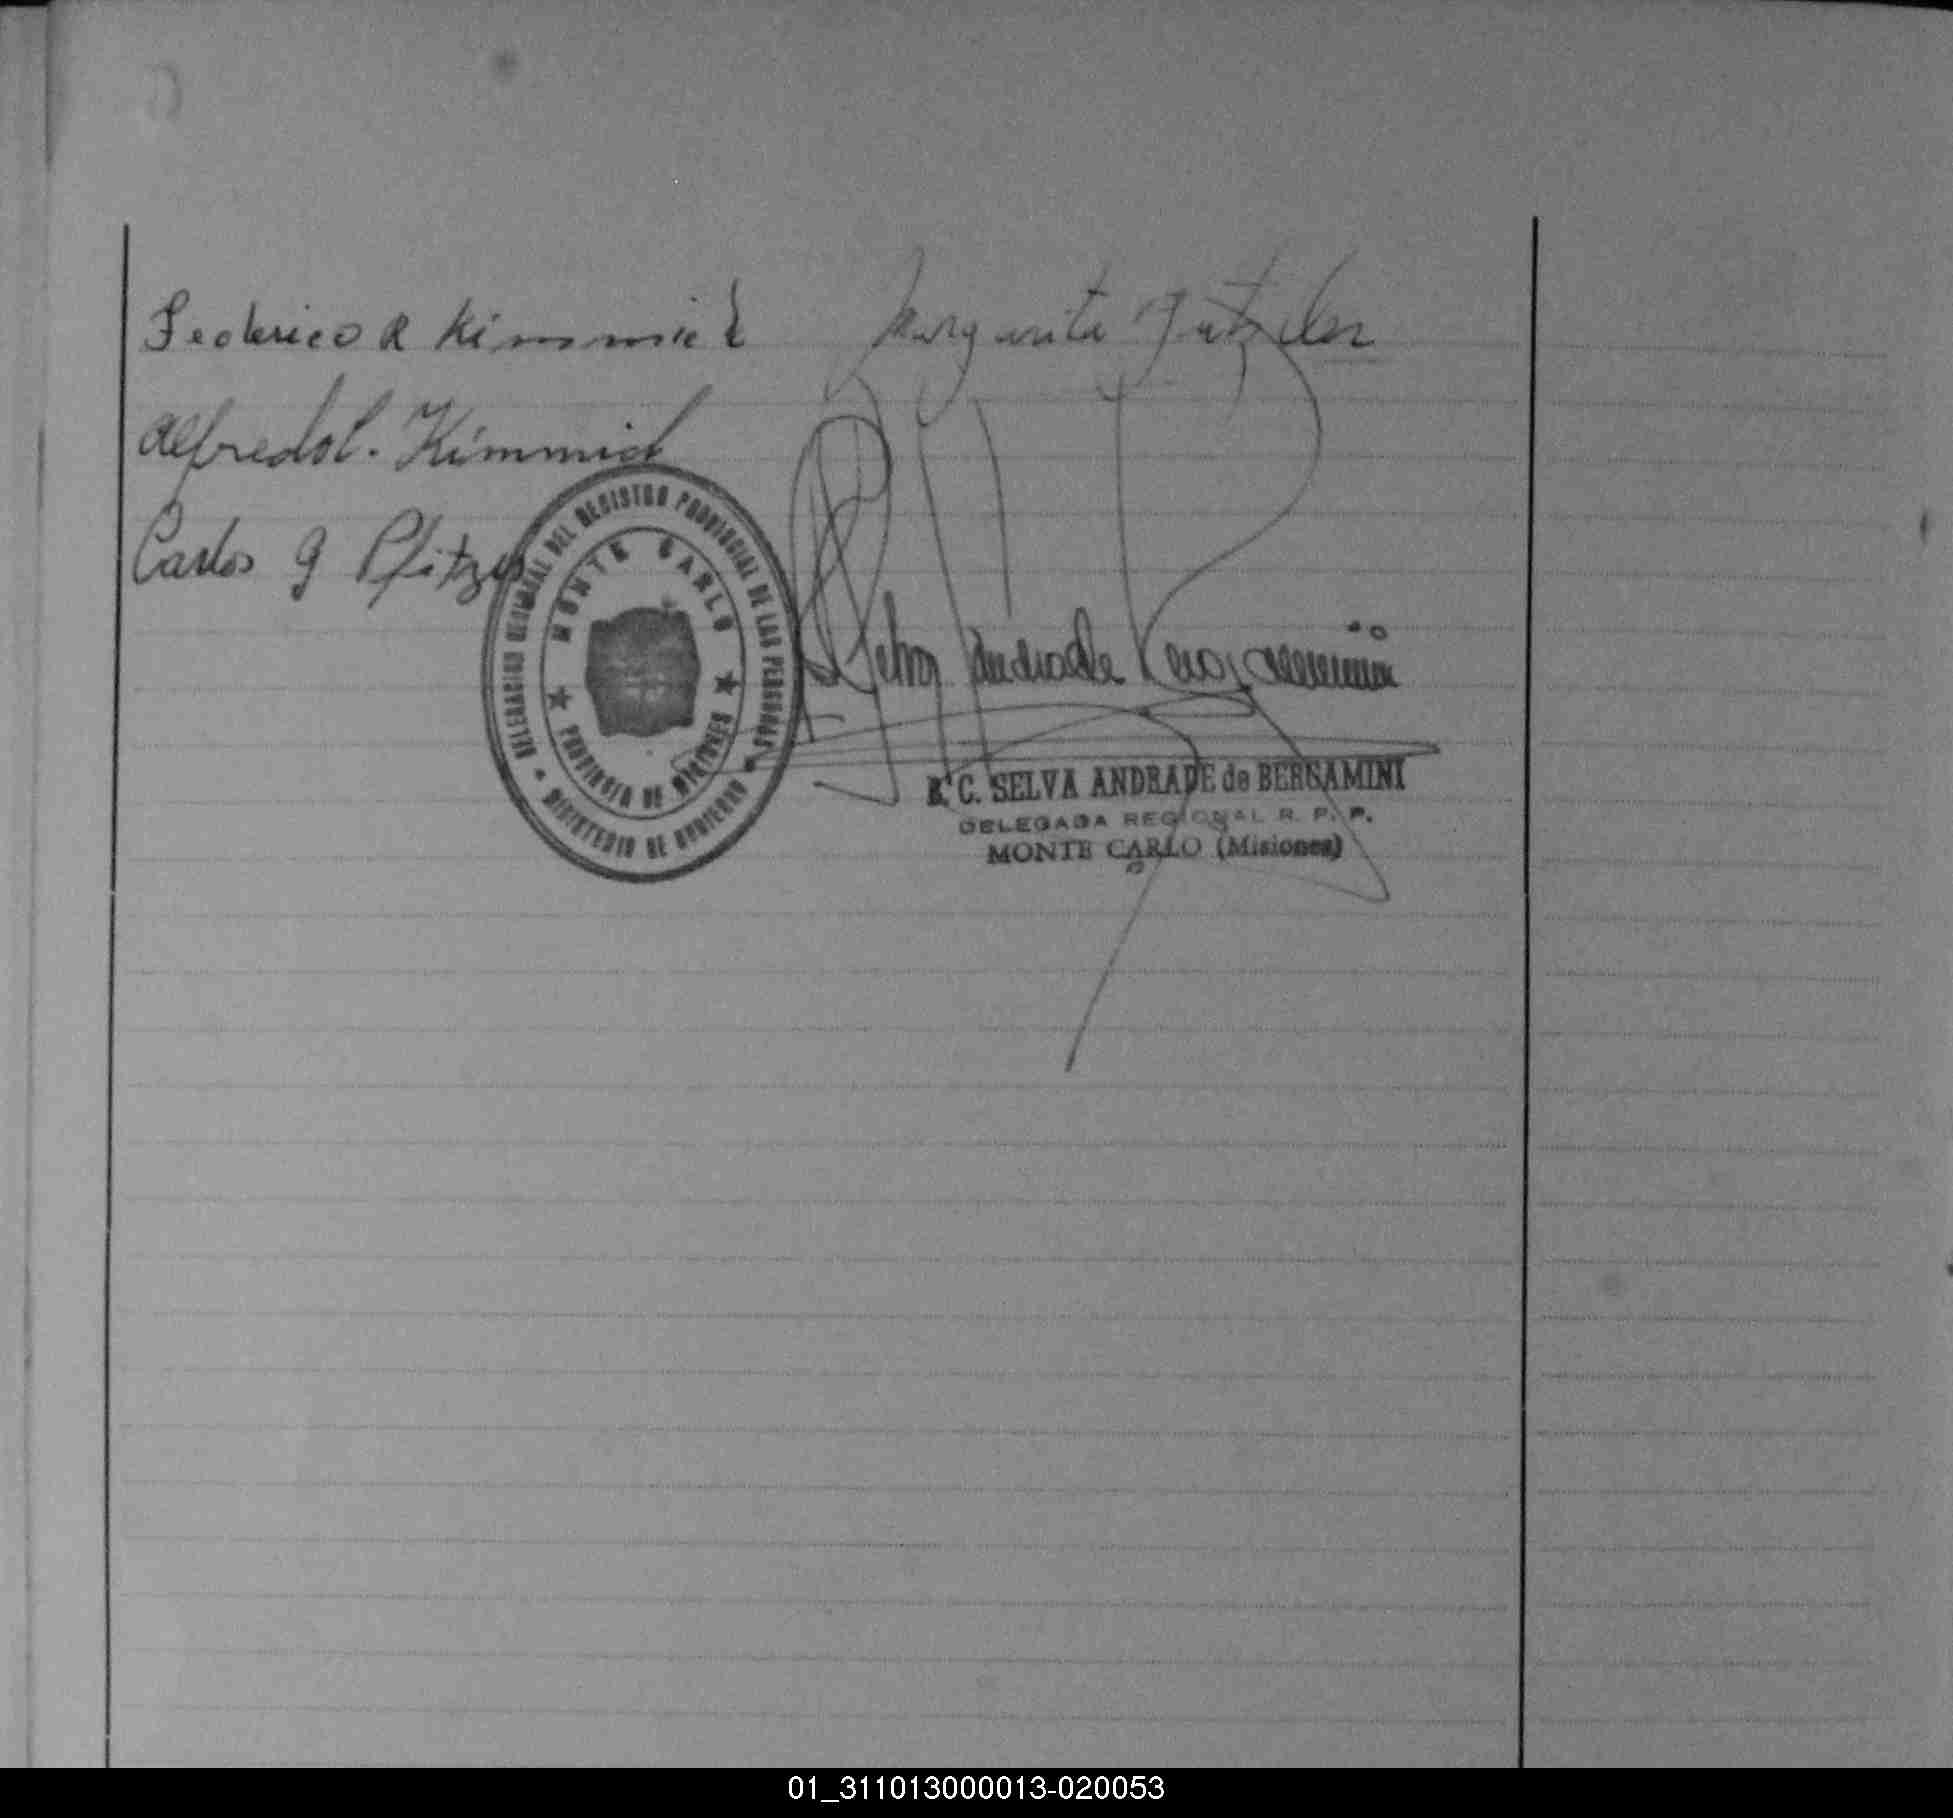 Federico R Kimmich
Margarita
Alfredo C. Kimmich
Carlos G Pfitzer
DELEGACION REGIONAL DEL REGISTRO PROVINCIAL DE LAS PERSONAS
MINISTERIO DE GOBIERNO
MONTE CARLO
PROVINCIA DE MISIONES
Selva Andrade Bergamini
B. C. SELVA ANDRADE de BERGAMINI
DELEGADA REGIONAL R. P. P.
MONTE CARLO (Misiones)
01_311013000013-020053